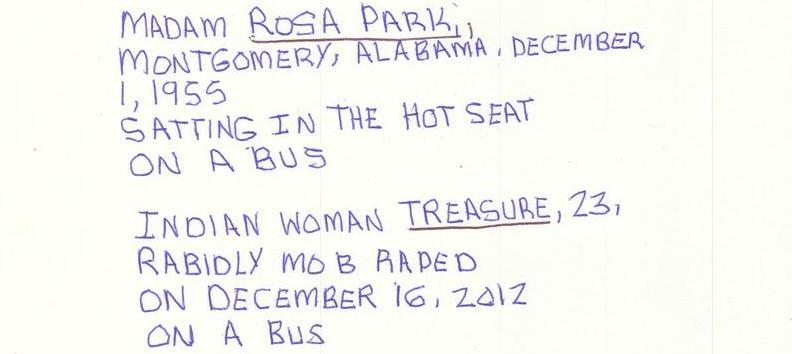 MADAM ROSA PARK,,
MONTGOMERY, ALABAMA, DECEMBER
1, 1955
SATTING IN THE HOT SEAT
ON A BUS
INDIAN WOMAN TREASURE, 23,
RABIDLY MOB RAPED
ON DECEMBER 16, 2012
ON A BUS